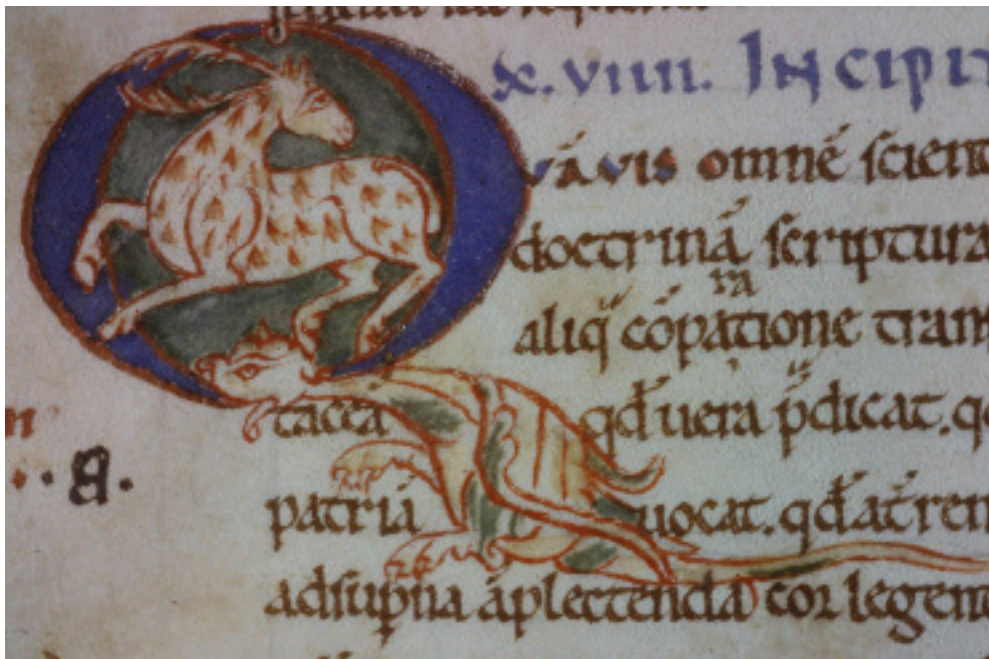 X.VIIII. INCIPI
Quāvis omnē scient
doctrinā scriptura
ra
aliq̄ cōpatione tran
tacea qđ uera p̄dicat. qđ
patriā uocat. qđ atren
ad sup̄na āplectenda cor legen
A.